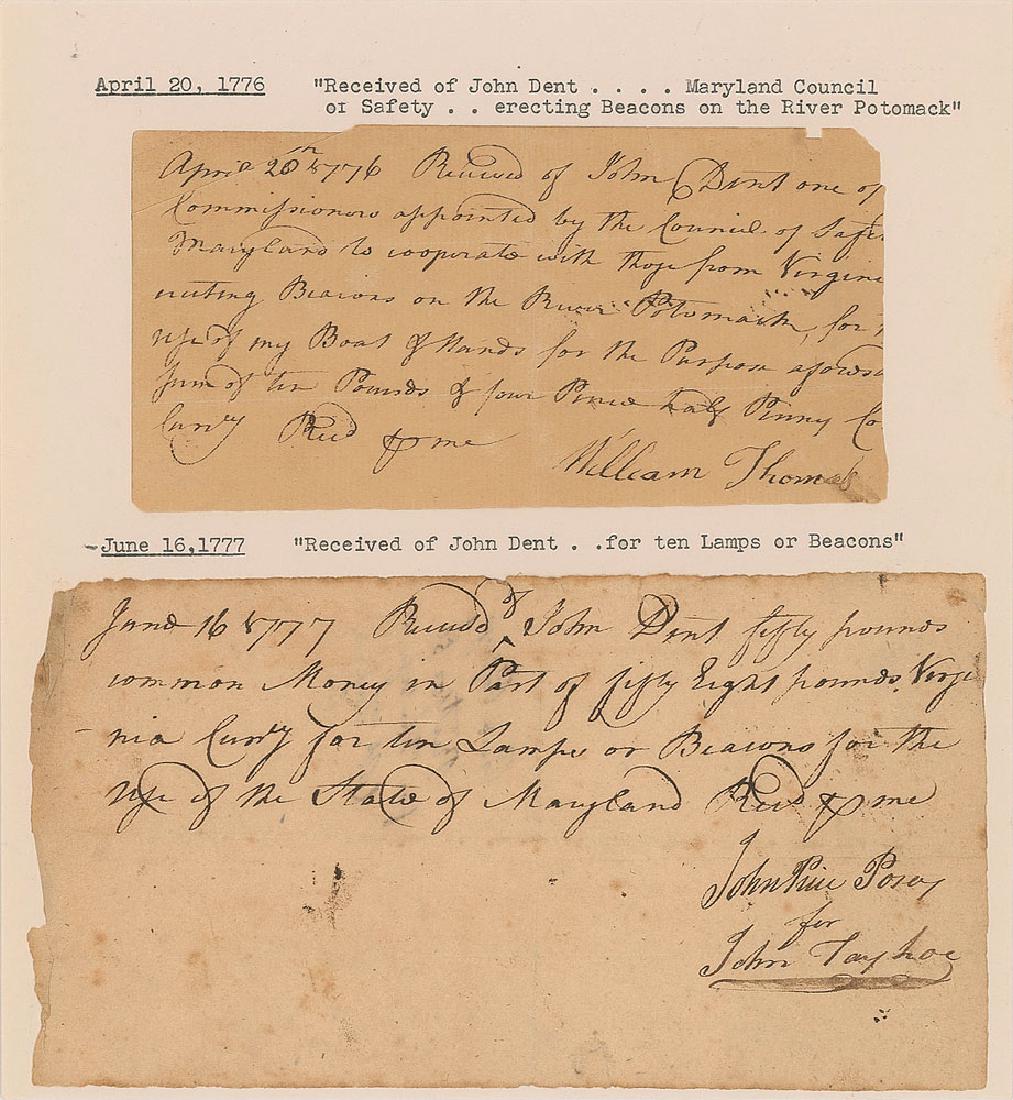 April 20, 1776 "Received of John Dent . . . . Maryland Council
of Safety . . erecting Beacons on the River Potomack"
April 20th 1776 Received of John Dent one of
Commissioners appointed by the Council of Safe
Maryland to cooperate with those from Virgini
erecting Beacons on the River Potomack, for
use of my Boat & Hands for the Purpose aforesd
sum of ten Pounds & four Pence half Penny Co
Curry Recd p me
William Thomas
June 16,1777 "Received of John Dent . .for ten Lamps or Beacons"
June 16 1777 Receivd of John Dent fifty pounds
common Money in Part of fifty Eight pounds Virgi
nia Curry for ten Lamps or Beacons for the
use of the State of Maryland Recd p me
John Price Posey
for
John Tayloe